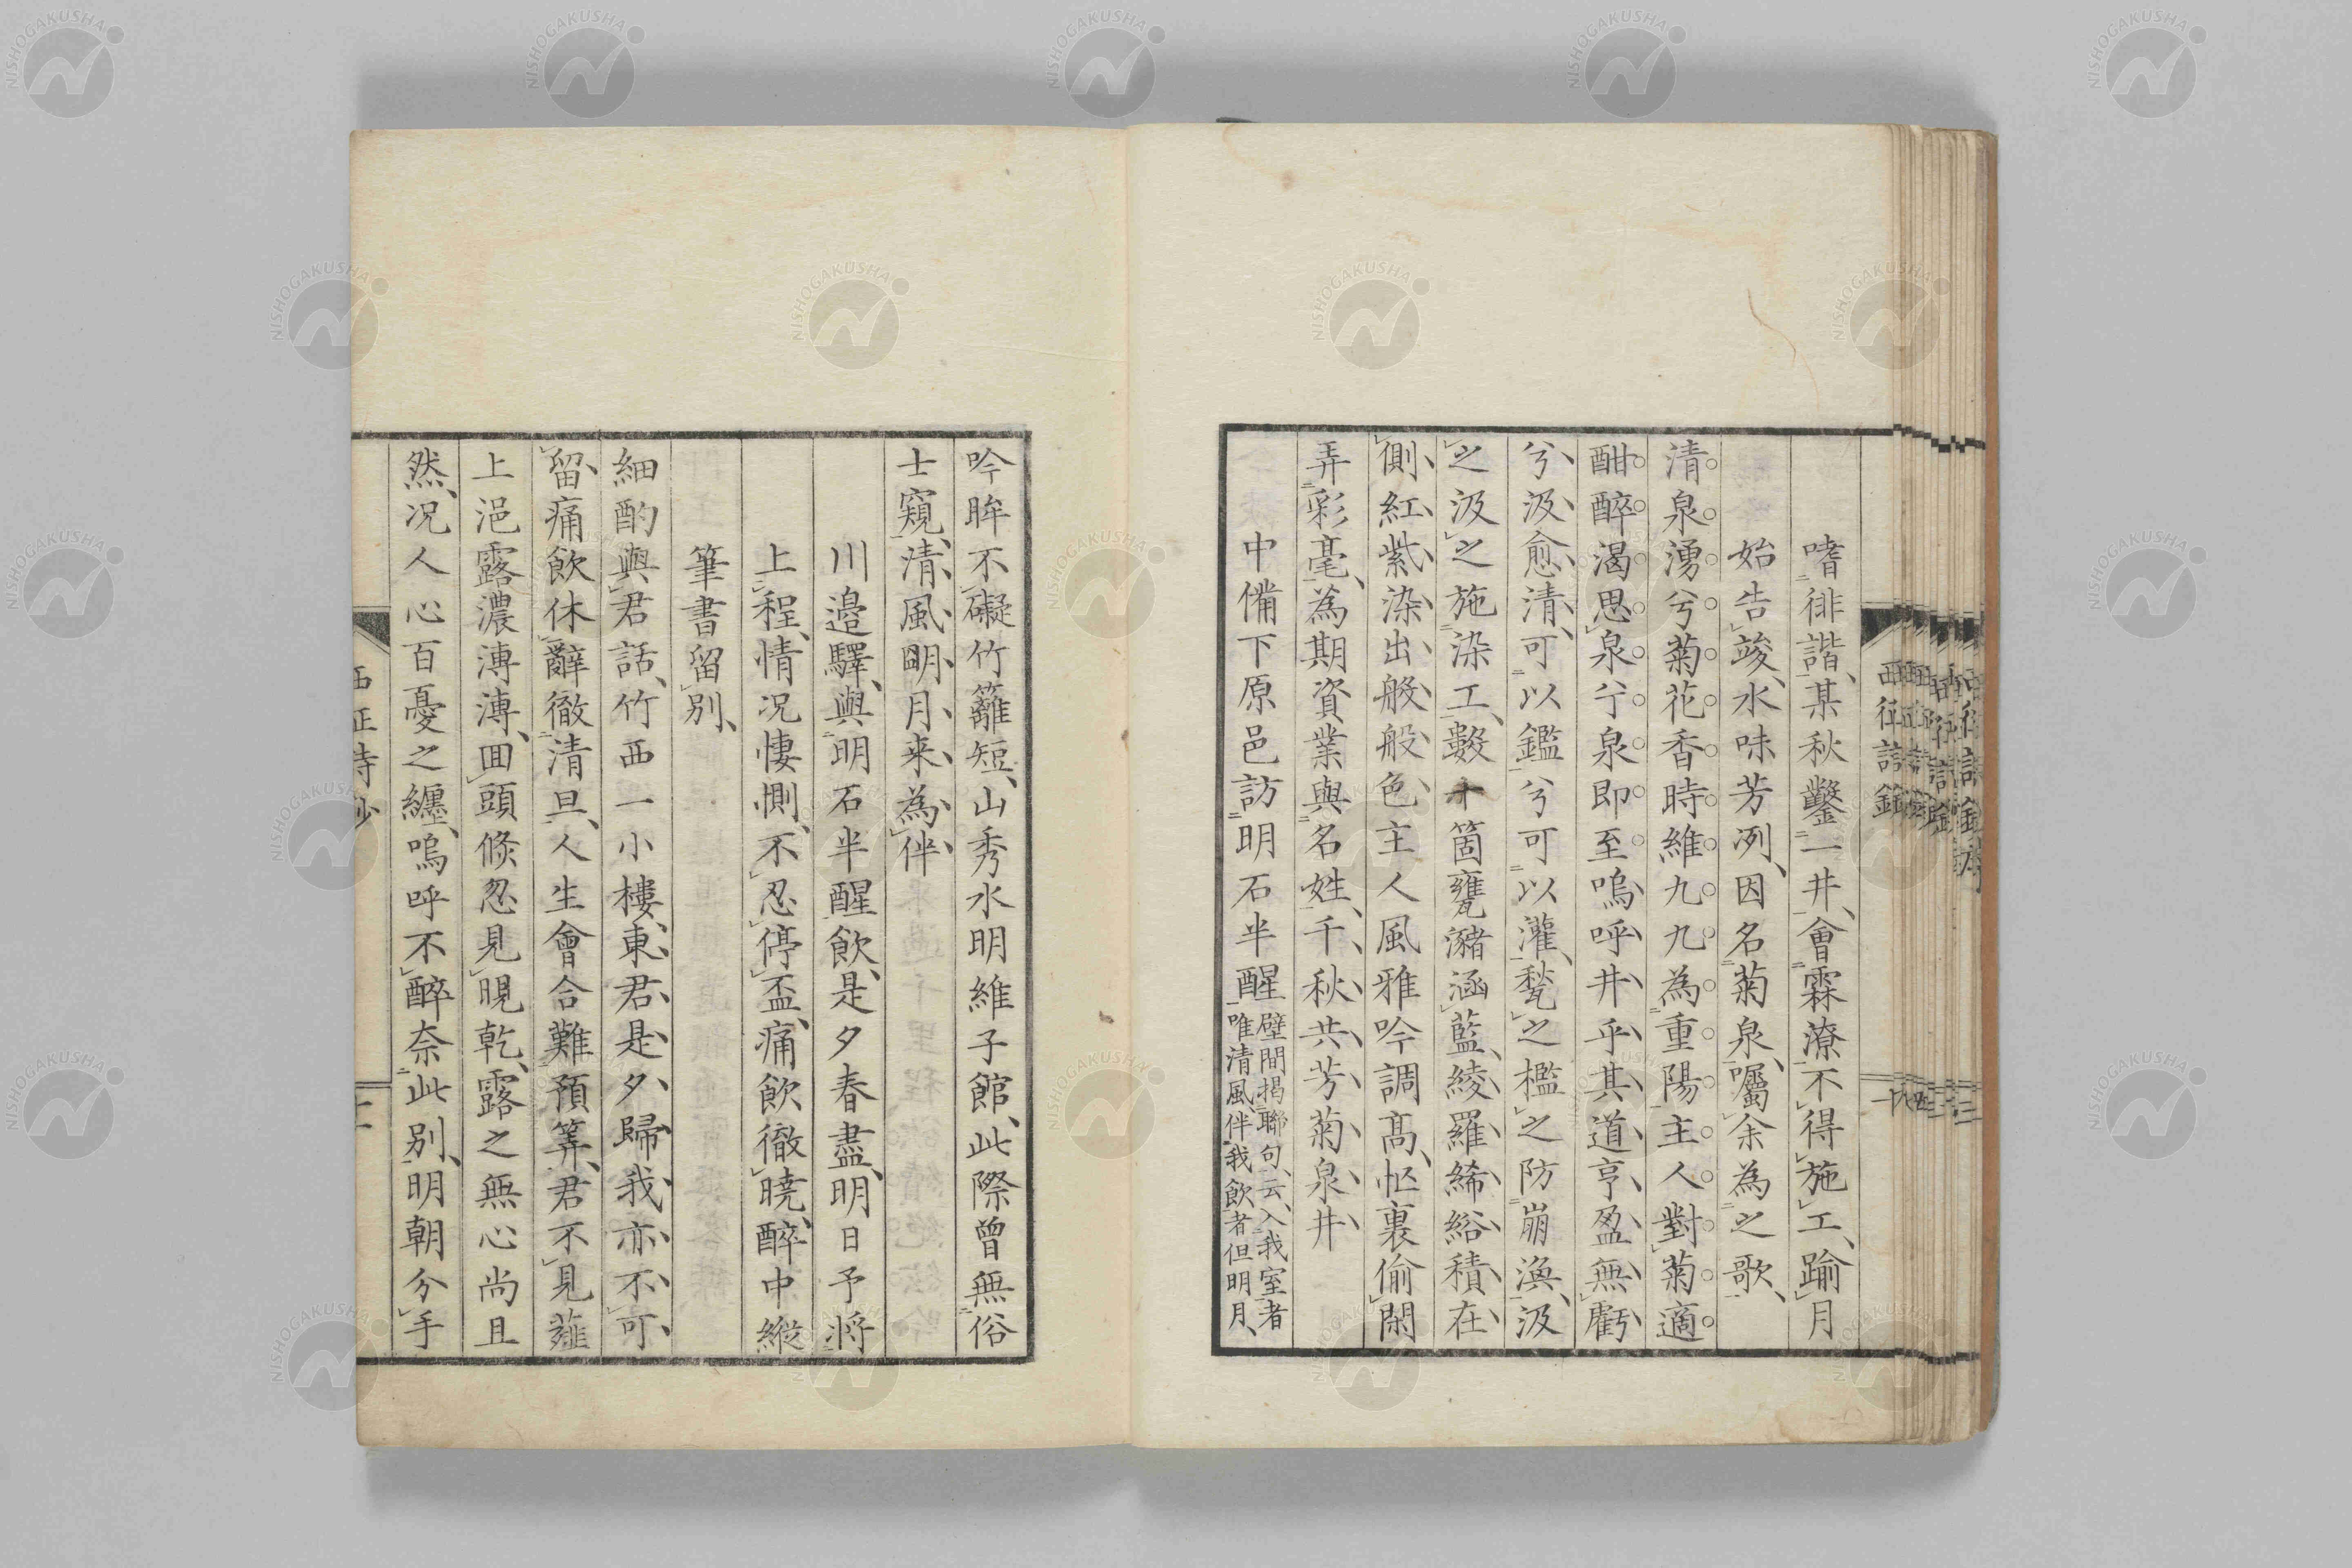 嗜徘諧、某秋鑿一井、會霖潦不得施工、踰月
始告竣、水味芳冽、因名菊泉、囑余為之歌、
清泉湧兮菊花香時維九九為重陽主人對菊適
酣醉渴思泉兮泉即至嗚呼井乎其道亨盈無虧
兮汲愈清可以鑑兮可以灌甃之檻之防崩渙汲
之汲之施染工數十箇甕瀦涵藍綾羅絺綌積在
側紅紫染出般般色主人風雅吟調高忙裏偷閑
弄彩毫為期資業與名姓千秋共芳菊泉井
中備下原邑訪明石半醒壁間揭聯句云入我室者
唯清風伴我飲者但明月、
吟眸不礙竹籬短山秀水明維子館此際曾無俗
士窺清風明月来為伴
川邉驛與明石半醒飲是夕春盡明日予將
上程情況悽惻不忍停盃痛飲徹曉醉中縱
筆書留別
細酌與君話竹西一小樓東君是夕歸我亦不可
留痛飲休辭徹清旦人生會合難預筭君不見薤
上浥露濃漙漙囬頭倏忽見晛乾露之無心尚且
然况人心百憂之纏嗚呼不醉奈此別明朝分手
西征詩鈔
NISHOGAKUSHA